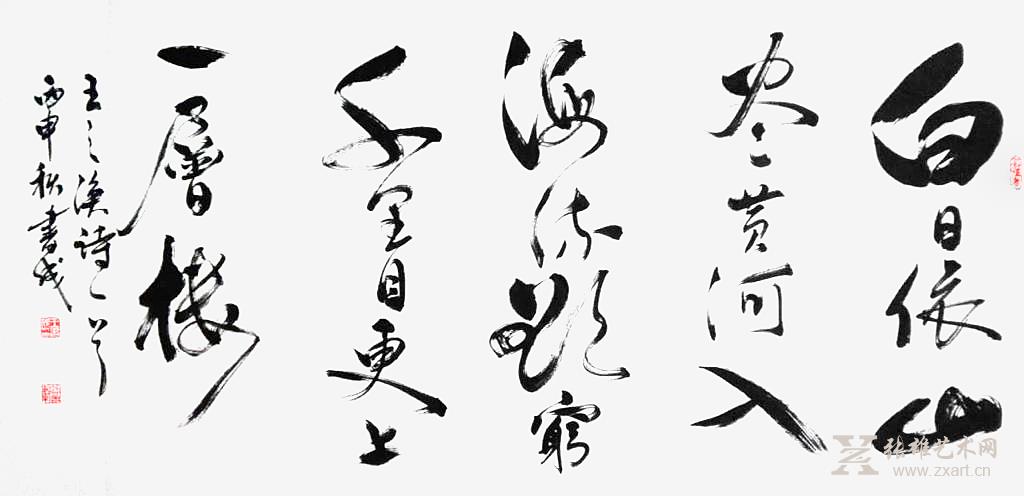 白日依山
尽黄河入
海流欲穷
千里目更上
一层楼
王之涣诗一首
丙申秋书成
张雄艺术网
www.zxart.cn